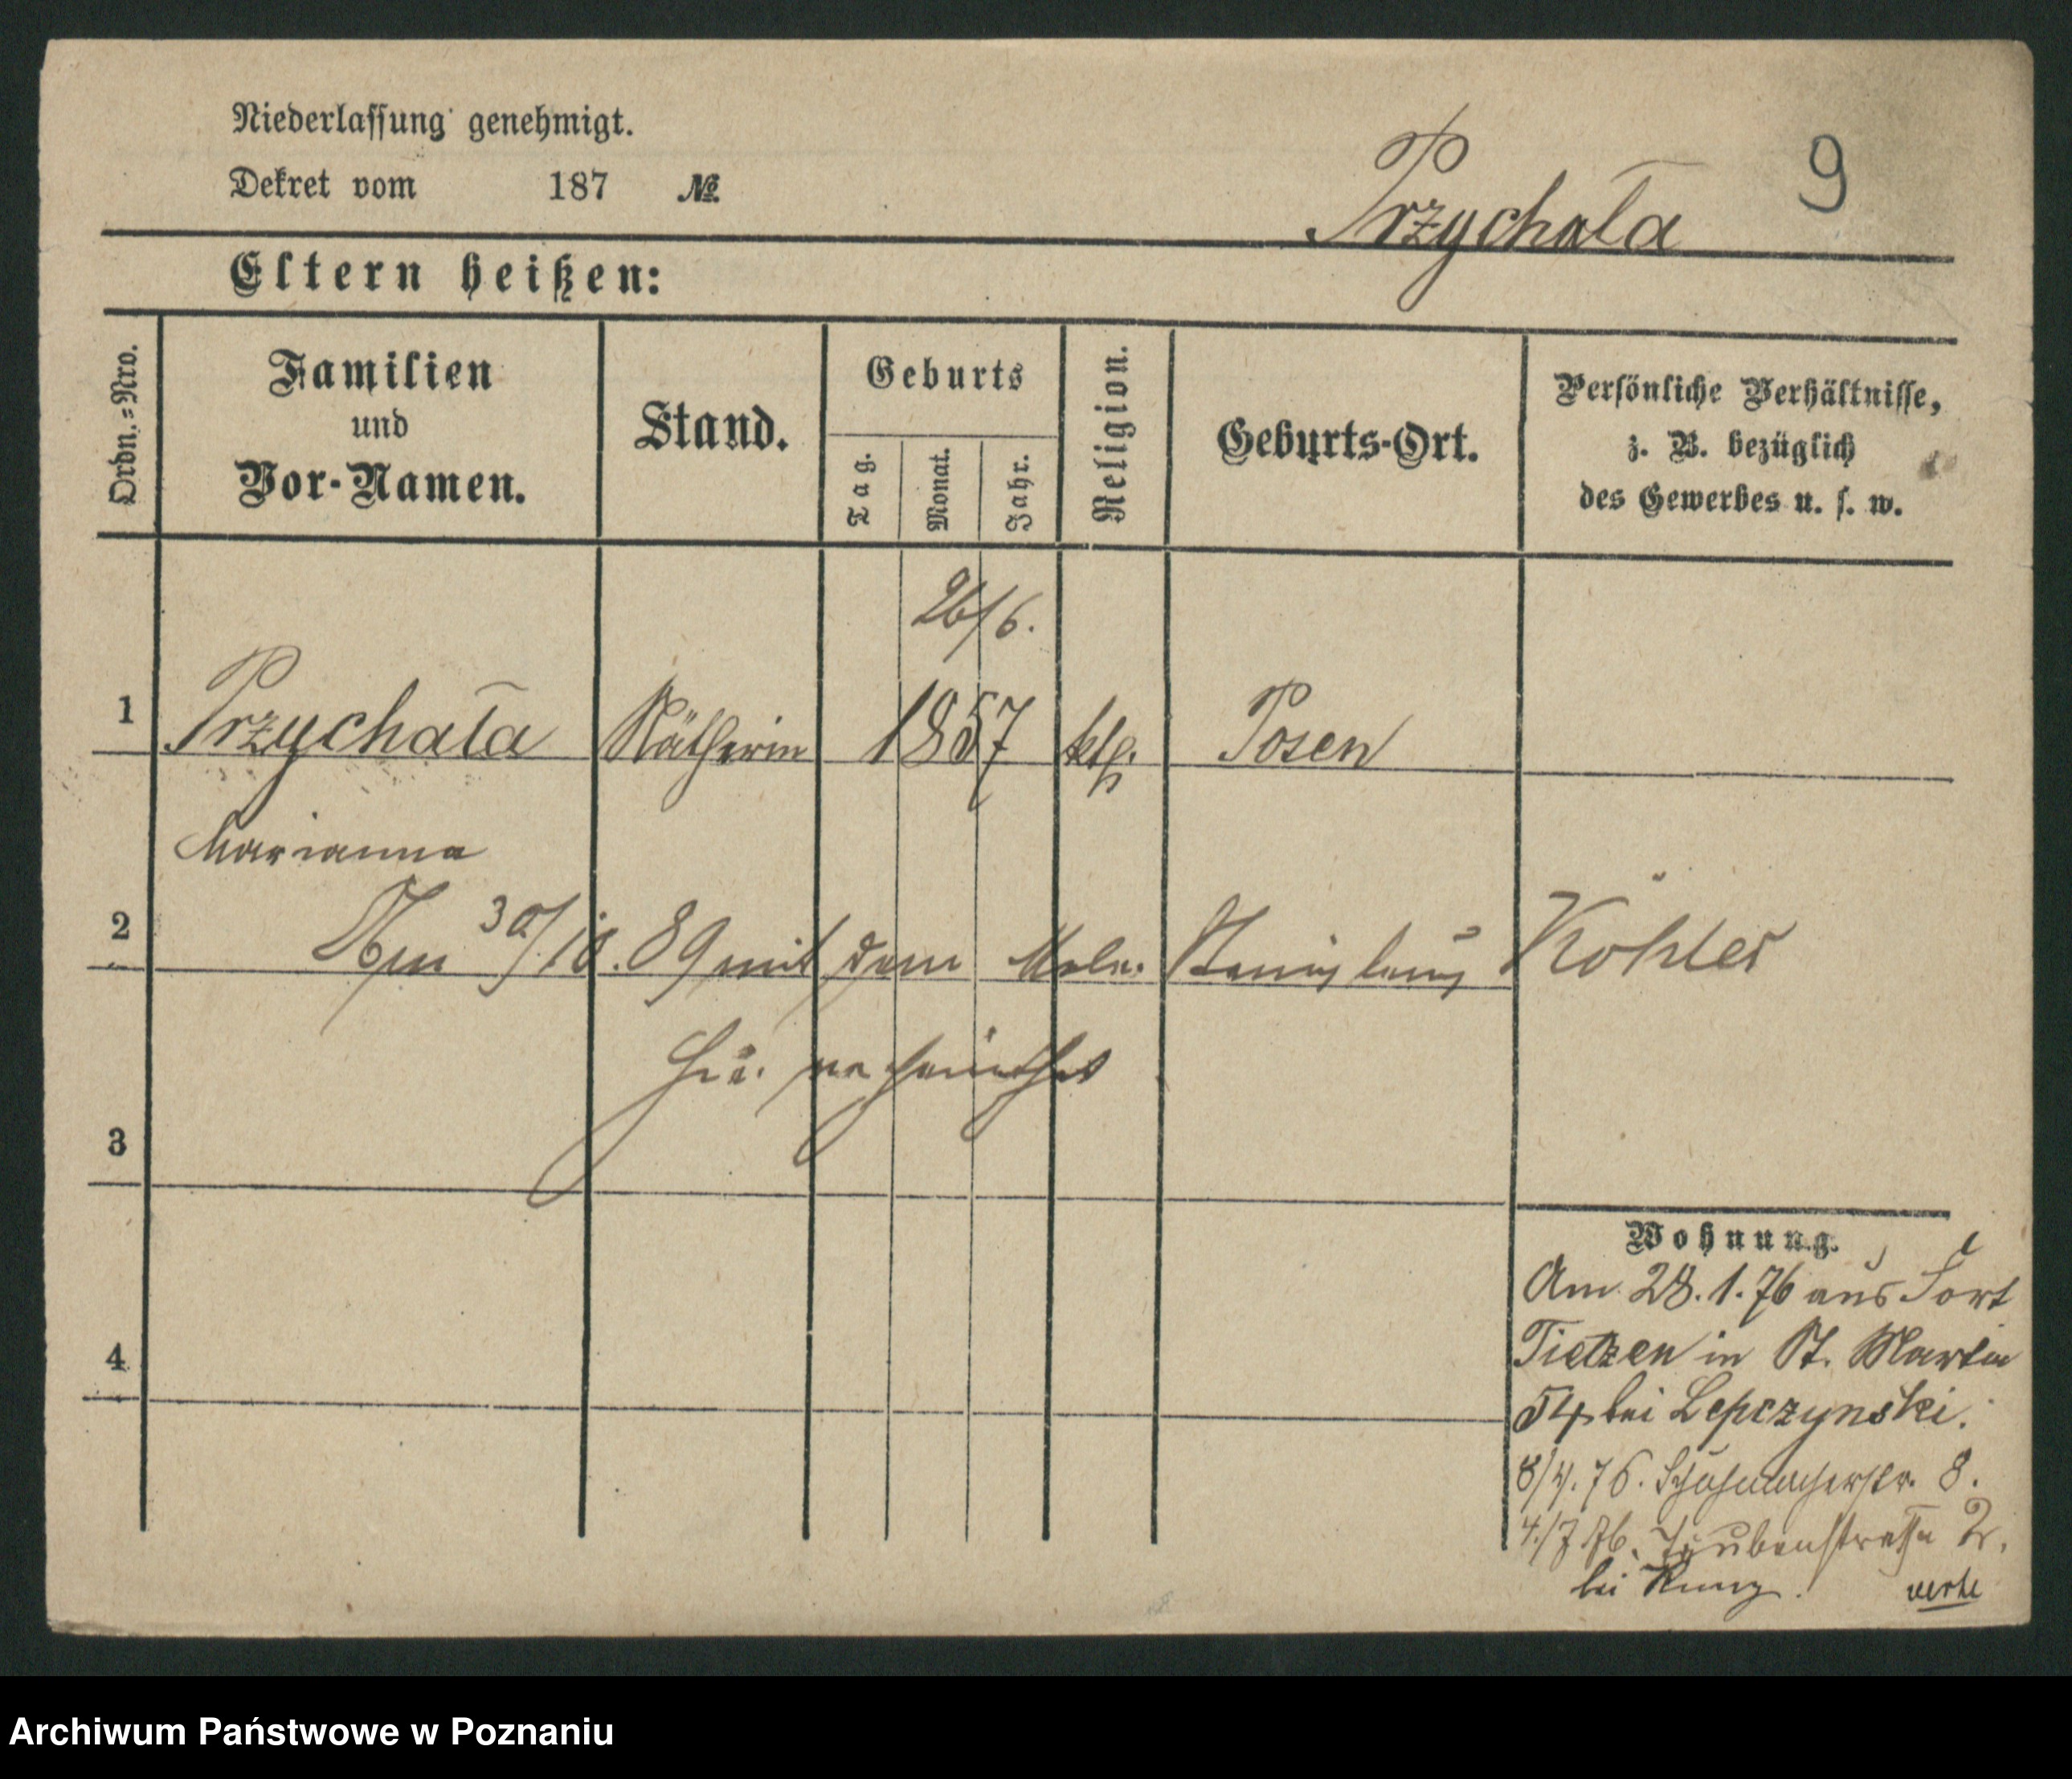 Niederlassung genehmigt.
Dekret vom 187 №
Przychała 9
Eltern heißen:
Ordn.=Nro.
Familien
und
Vor-Namen.
Stand.
Geburts
Tag.
Monat.
Jahr.
Religion.
Geburts-Ort.
Persönliche Verhältnisse,
z. B. bezüglich
des Gewerbes u. s. w.
26/6.
1 Przychała Nätherin 1857 kth. Posen
Marianna
2 Am 30/10. 89 mit dem Stanislaus Köhler
verheirathet
3
Wohnung.
Am 28.1.76 aus Fort
Tietzen in St. Martin
54 bei Lepczynski.
8/4. 76. Schuhmacherstr. 8.
4./7 76. Taubenstraße 2.
bei
verte
4
Archiwum Państwowe w Poznaniu